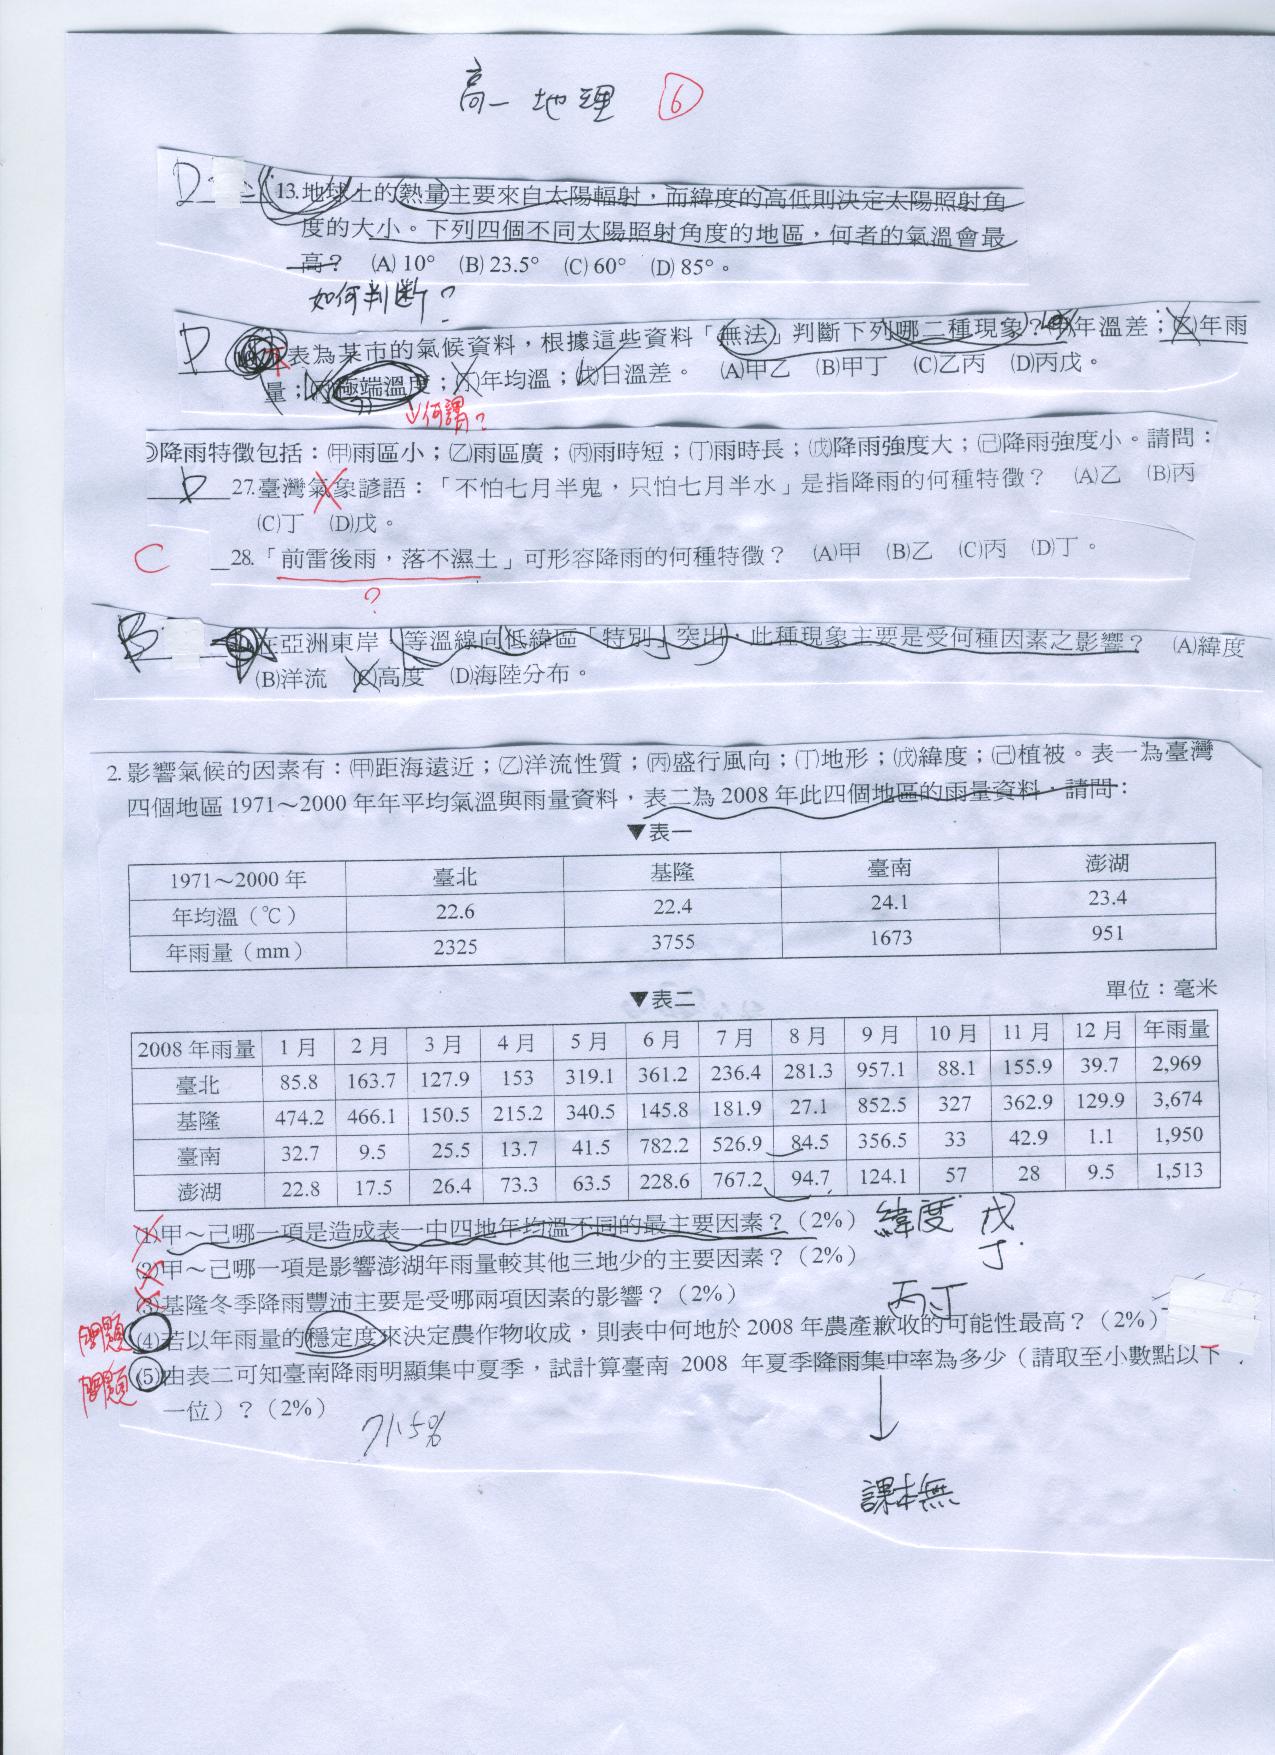 高一 地理 ⑥
D 13.地球上的熱量主要來自太陽輻射，而緯度的高低則決定太陽照射角
度的大小。下列四個不同太陽照射角度的地區，何者的氣溫會最
高？ (A) 10° (B) 23.5° (C) 60° (D) 85°。
如何判斷？
D 表為某市的氣候資料，根據這些資料「無法」判斷下列哪二種現象？ 年溫差；㈡年雨
量；㈢極端溫度；㈣年均溫；㈤日溫差。 (A)甲乙 (B)甲丁 (C)乙丙 (D)丙戊。
何謂？
降雨特徵包括：㈠雨區小；㈡雨區廣；㈢雨時短；㈣雨時長；㈤降雨強度大；㈥降雨強度小。請問：
D 27.臺灣氣象諺語：「不怕七月半鬼，只怕七月半水」是指降雨的何種特徵？ (A)乙 (B)丙
(C)丁 (D)戊。
C 28.「前雷後雨，落不濕土」可形容降雨的何種特徵？ (A)甲 (B)乙 (C)丙 (D)丁。
?
B 在亞洲東岸，等溫線向低緯區「特別」突出，此種現象主要是受何種因素之影響？ (A)緯度
(B)洋流 (C)高度 (D)海陸分布。
2. 影響氣候的因素有：(甲)距海遠近；(乙)洋流性質；(丙)盛行風向；(丁)地形；(戊)緯度；(己)植被。表一為臺灣
四個地區 1971～2000 年年平均氣溫與雨量資料，表二為 2008 年此四個地區的雨量資料，請問：
▼表一
1971～2000 年 臺北 基隆 臺南 澎湖
年均溫（℃） 22.6 22.4 24.1 23.4
年雨量（mm） 2325 3755 1673 951
▼表二 單位：毫米
2008 年雨量 1 月 2 月 3 月 4 月 5 月 6 月 7 月 8 月 9 月 10 月 11 月 12 月 年雨量
臺北 85.8 163.7 127.9 153 319.1 361.2 236.4 281.3 957.1 88.1 155.9 39.7 2,969
基隆 474.2 466.1 150.5 215.2 340.5 145.8 181.9 27.1 852.5 327 362.9 129.9 3,674
臺南 32.7 9.5 25.5 13.7 41.5 782.2 526.9 84.5 356.5 33 42.9 1.1 1,950
澎湖 22.8 17.5 26.4 73.3 63.5 228.6 767.2 94.7 124.1 57 28 9.5 1,513
(1)甲～己哪一項是造成表一中四地年均溫不同的最主要因素？（2%） 緯度 戊
(2)甲～己哪一項是影響澎湖年雨量較其他三地少的主要因素？（2%） 丁
(3)基隆冬季降雨豐沛主要是受哪兩項因素的影響？（2%） 丙丁
問題 (4)若以年雨量的穩定度來決定農作物收成，則表中何地於 2008 年農產歉收的可能性最高？（2%）
問題 (5)由表二可知臺南降雨明顯集中夏季，試計算臺南 2008 年夏季降雨集中率為多少（請取至小數點以下
一位）？（2%）
71.5%
課本無